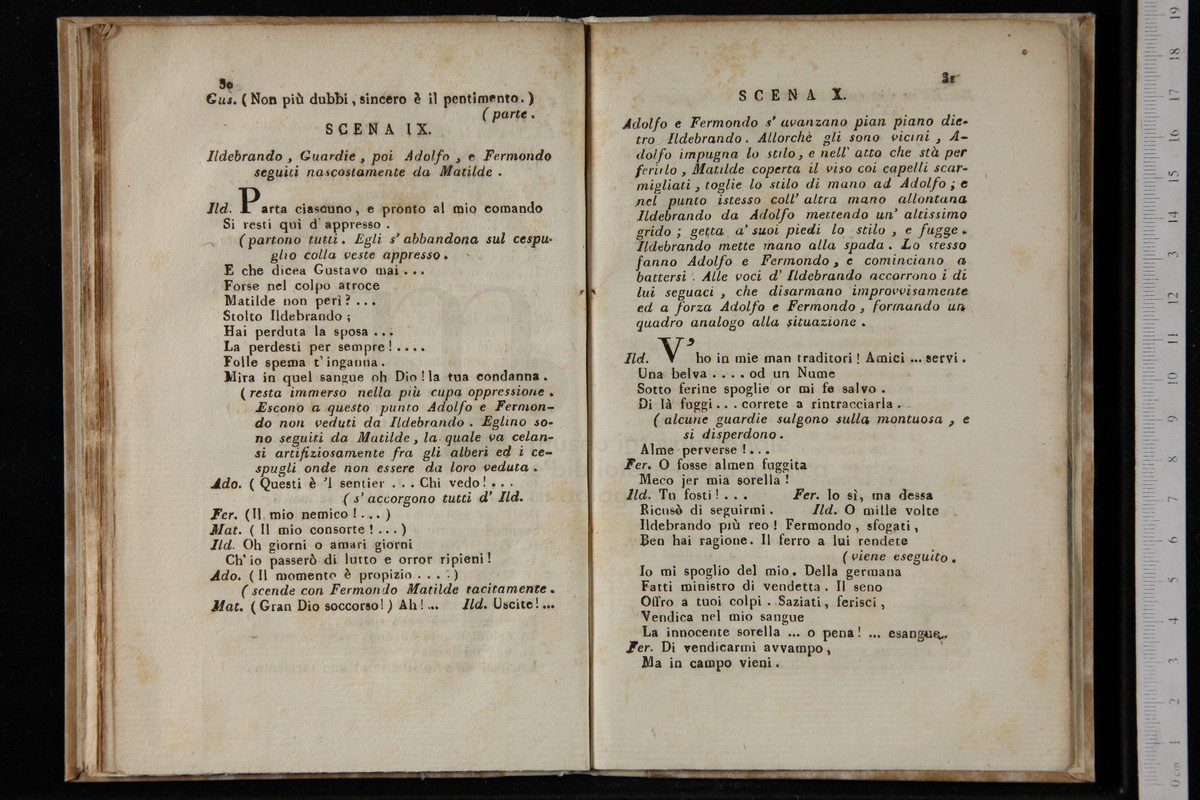 30
Gus. ( Non più dubbi , sincero è il pentimento. )
( parte .
SCENA IX.
Ildebrando , Guardie , poi Adolfo , e Fermondo
seguiti nascostamente da Matilde .
Ild. Parta ciascuno, e pronto al mio comando
Si resti quì d' appresso .
( partono tutti . Egli s' abbandona sul cespu-
glio colla veste appresso .
E che dicea Gustavo mai . . .
Forse nel colpo atroce
Matilde non perì ? . . .
Stolto Ildebrando ;
Hai perduta la sposa . . .
La perdesti per sempre ! . . . .
Folle spema t' inganna .
Mira in quel sangue oh Dio ! la tua condanna .
( resta immerso nella più cupa oppressione .
Escono a questo punto Adolfo e Fermon-
do non veduti da Ildebrando . Eglino so-
no seguiti da Matilde , la quale va celan-
si artifiziosamente fra gli alberi ed i ce-
spugli onde non essere da loro veduta .
Ado. ( Questi è 'l sentier . . . Chi vedo ! . . .
( s' accorgono tutti d' Ild.
Fer. ( Il mio nemico ! . . . )
Mat. ( Il mio consorte ! . . . )
Ild. Oh giorni o amari giorni
Ch' io passerò di lutto e orror ripieni !
Ado. ( Il momento è propizio . . . . )
( scende con Fermondo Matilde tacitamente .
Mat. ( Gran Dio soccorso! ) Ah ! ... Ild. Uscite ! ...
31
SCENA X.
Adolfo e Fermondo s' avanzano pian piano die-
tro Ildebrando . Allorchè gli sono vicini , A-
dolfo impugna lo stilo , e nell' atto che stà per
ferirlo , Matilde coperta il viso coi capelli scar-
migliati , toglie lo stilo di mano ad Adolfo ; e
nel punto istesso coll' altra mano allontana
Ildebrando da Adolfo mettendo un' altissimo
grido ; getta a' suoi piedi lo stilo , e fugge .
Ildebrando mette mano alla spada . Lo stesso
fanno Adolfo e Fermondo , e cominciano a
battersi . Alle voci d' Ildebrando accorrono i di
lui seguaci , che disarmano improvvisamente
ed a forza Adolfo e Fermondo , formando un
quadro analogo alla situazione .
Ild. V' ho in mie man traditori ! Amici ... servi .
Una belva . . . . od un Nume
Sotto ferine spoglie or mi fe salvo .
Di là fuggì . . . correte a rintracciarla .
( alcune guardie salgono sulla montuosa , e
si disperdono .
Alme perverse ! . . .
Fer. O fosse almen fuggita
Meco jer mia sorella !
Ild. Tu fosti ! . . . Fer. Io sì, ma dessa
Ricusò di seguirmi . Ild. O mille volte
Ildebrando più reo ! Fermondo , sfogati ,
Ben hai ragione. Il ferro a lui rendete
( viene eseguito .
Io mi spoglio del mio . Della germana
Fatti ministro di vendetta . Il seno
Offro a tuoi colpi . Saziati , ferisci ,
Vendica nel mio sangue
La innocente sorella ... o pena ! ... esangue...
Fer. Di vendicarmi avvampo ,
Ma in campo vieni .